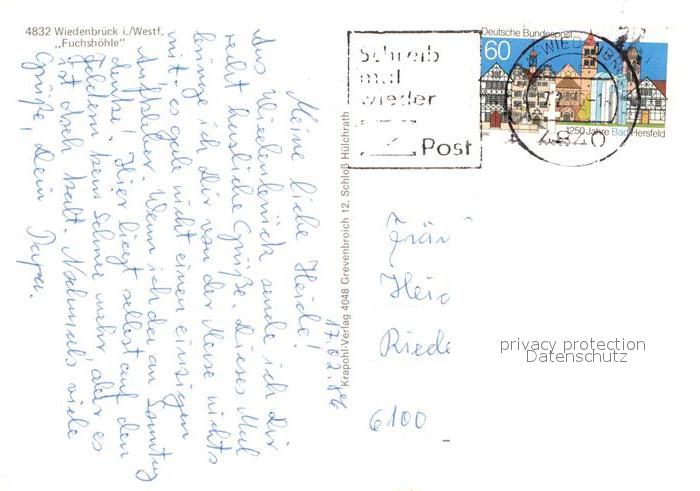 4832 Wiedenbrück i./Westf.
„Fuchshöhle"
Meine liebe Heide!
17.02.86
Aus Wiedenbrück sende ich Dir
recht herzliche Grüße. Dieses Mal
bringe ich Dir von der Messe nichts
mit - es gab nicht einen einzigen
Aufkleber. Wenn ich da an Sonntag
denke! Hier liegt selbst auf den
Feldern kein Schnee mehr, aber es
ist doch kalt. Nochmals viele
Grüße, Dein Papa.
Krapohl-Verlag 4048 Grevenbroich 12, Schloß Hülchrath
Schreib
mal
wieder
Post
Deutsche Bundespost
60
1250 Jahre Bad Hersfeld
WIEDENBR
4840
Fräu
Heid
Riede
6100
privacy protection
Datenschutz